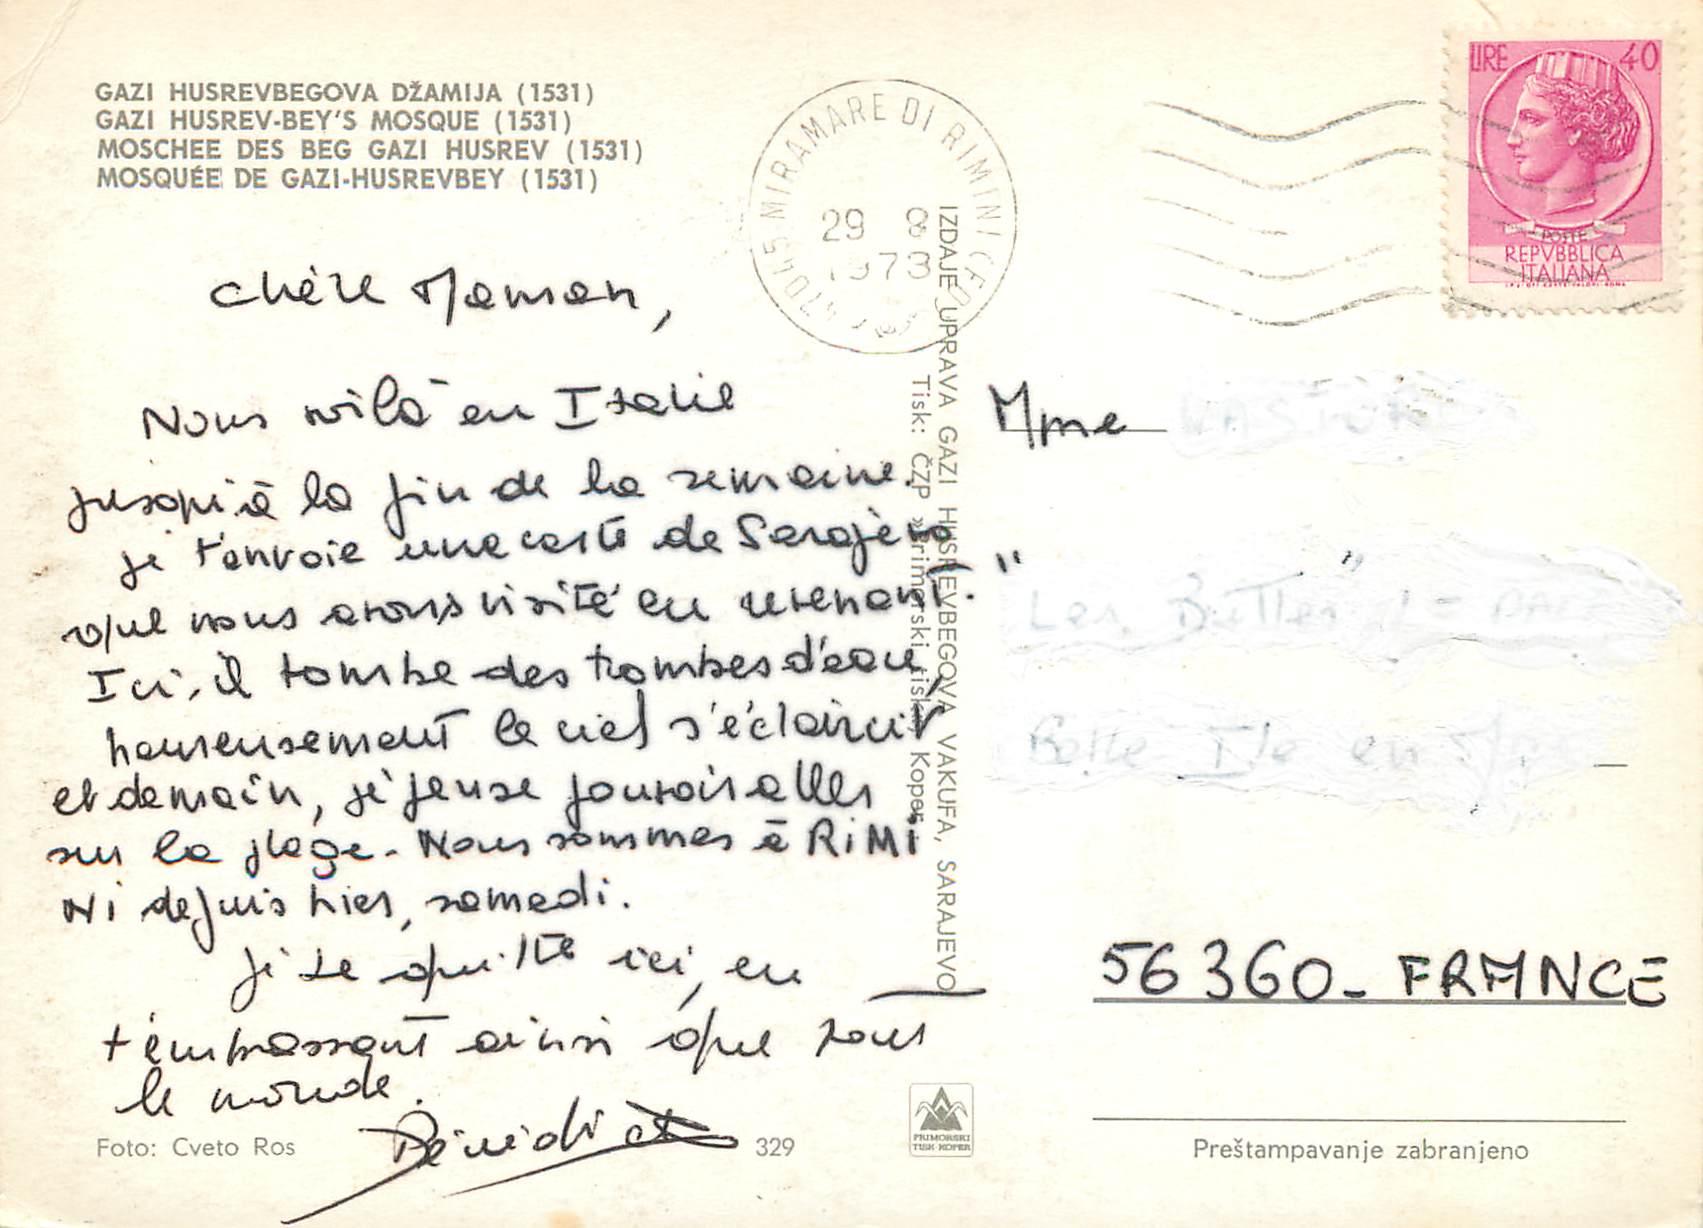 GAZI HUSREVBEGOVA DŽAMIJA (1531)
GAZI HUSREV-BEY'S MOSQUE (1531)
MOSCHEE DES BEG GAZI HUSREV (1531)
MOSQUÉE DE GAZI-HUSREVBEY (1531)
Chère Maman,
Nous voilà en Italie
jusqu'à la fin de la semaine.
je t'envoie une carte de Sarajevo
que nous avons visité en revenant.
Ici, il tombe des trombes d'eau,
heureusement le ciel s'éclaircit
et demain, je pense pouvoir aller
sur la plage. Nous sommes à RiMi
Ni depuis hier, samedi.
Je te quitte ici, en
t'embrassant ainsi que tout
le monde.
Bénédicte
Foto: Cveto Ros
329
47045 MIRAMARE DI RIMINI (FO)
29 8
IZDAJE UPRAVA GAZI HUSREVBEGOVA VAKUFA, SARAJEVO
Tisk: ČZP »Primorski tisk« Koper
PRIMORSKI
TISK KOPER
LIRE 40
POSTE
REPVBBLICA
ITALIANA
Mme
"Les Buttes"
Belle Ile en
56360 - FRANCE
Preštampavanje zabranjeno